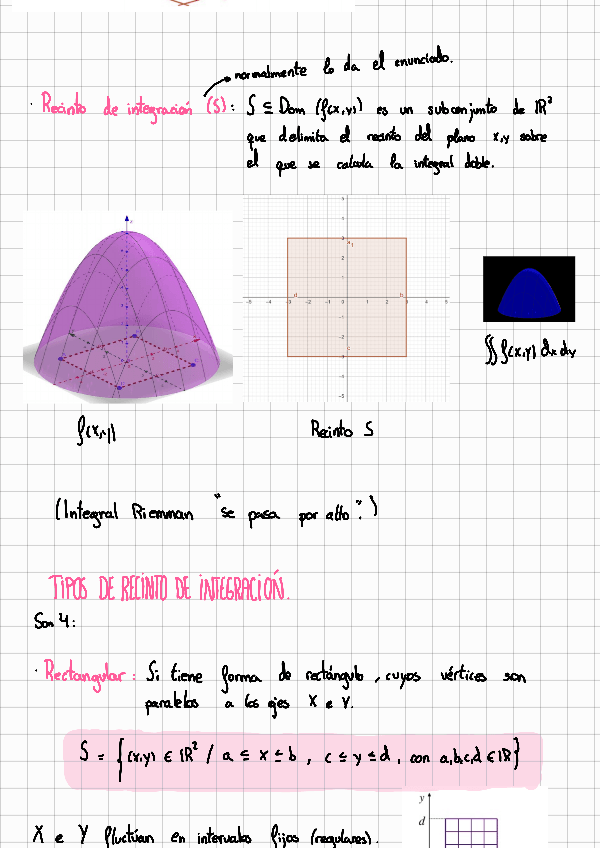 normalmente lo da el enunciado.
· Recinto de integración (S): S ⊆ Dom (f(x,y)) es un subconjunto de IR²
que delimita el recinto del plano x,y sobre
el que se calcula la integral doble.
∬ f(x,y) dx dy
f(x,y)
Recinto S
(Integral Riemman "se pasa por alto".)
TIPOS DE RECINTO DE INTEGRACIÓN.
Son 4:
· Rectangular: Si tiene forma de rectángulo, cuyos vértices son
paralelos a los ejes X e Y.
S = {(x,y) ∈ IR² / a ≤ x ≤ b, c ≤ y ≤ d, con a,b,c,d ∈ IR}
y
d
X e Y fluctúan en intervalos fijos (regulares).